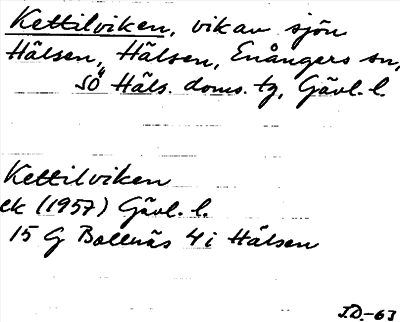 Kettilviken, vik av sjön
Hälsen, Hälsen, Enångers sn,
SÖ Häls. doms. tg, Gävl. l.
Kettilviken
ek (1957) Gävl. l.
15 G Bollnäs 4 i Hälsen
J.D.-63